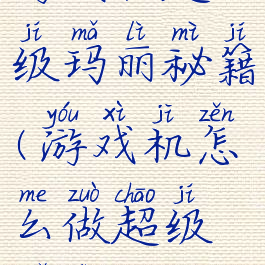 jí mǎ lì mì jí
级玛丽秘籍
yóu xì jī zěn
(游戏机怎
me zuò chāo jí
么做超级